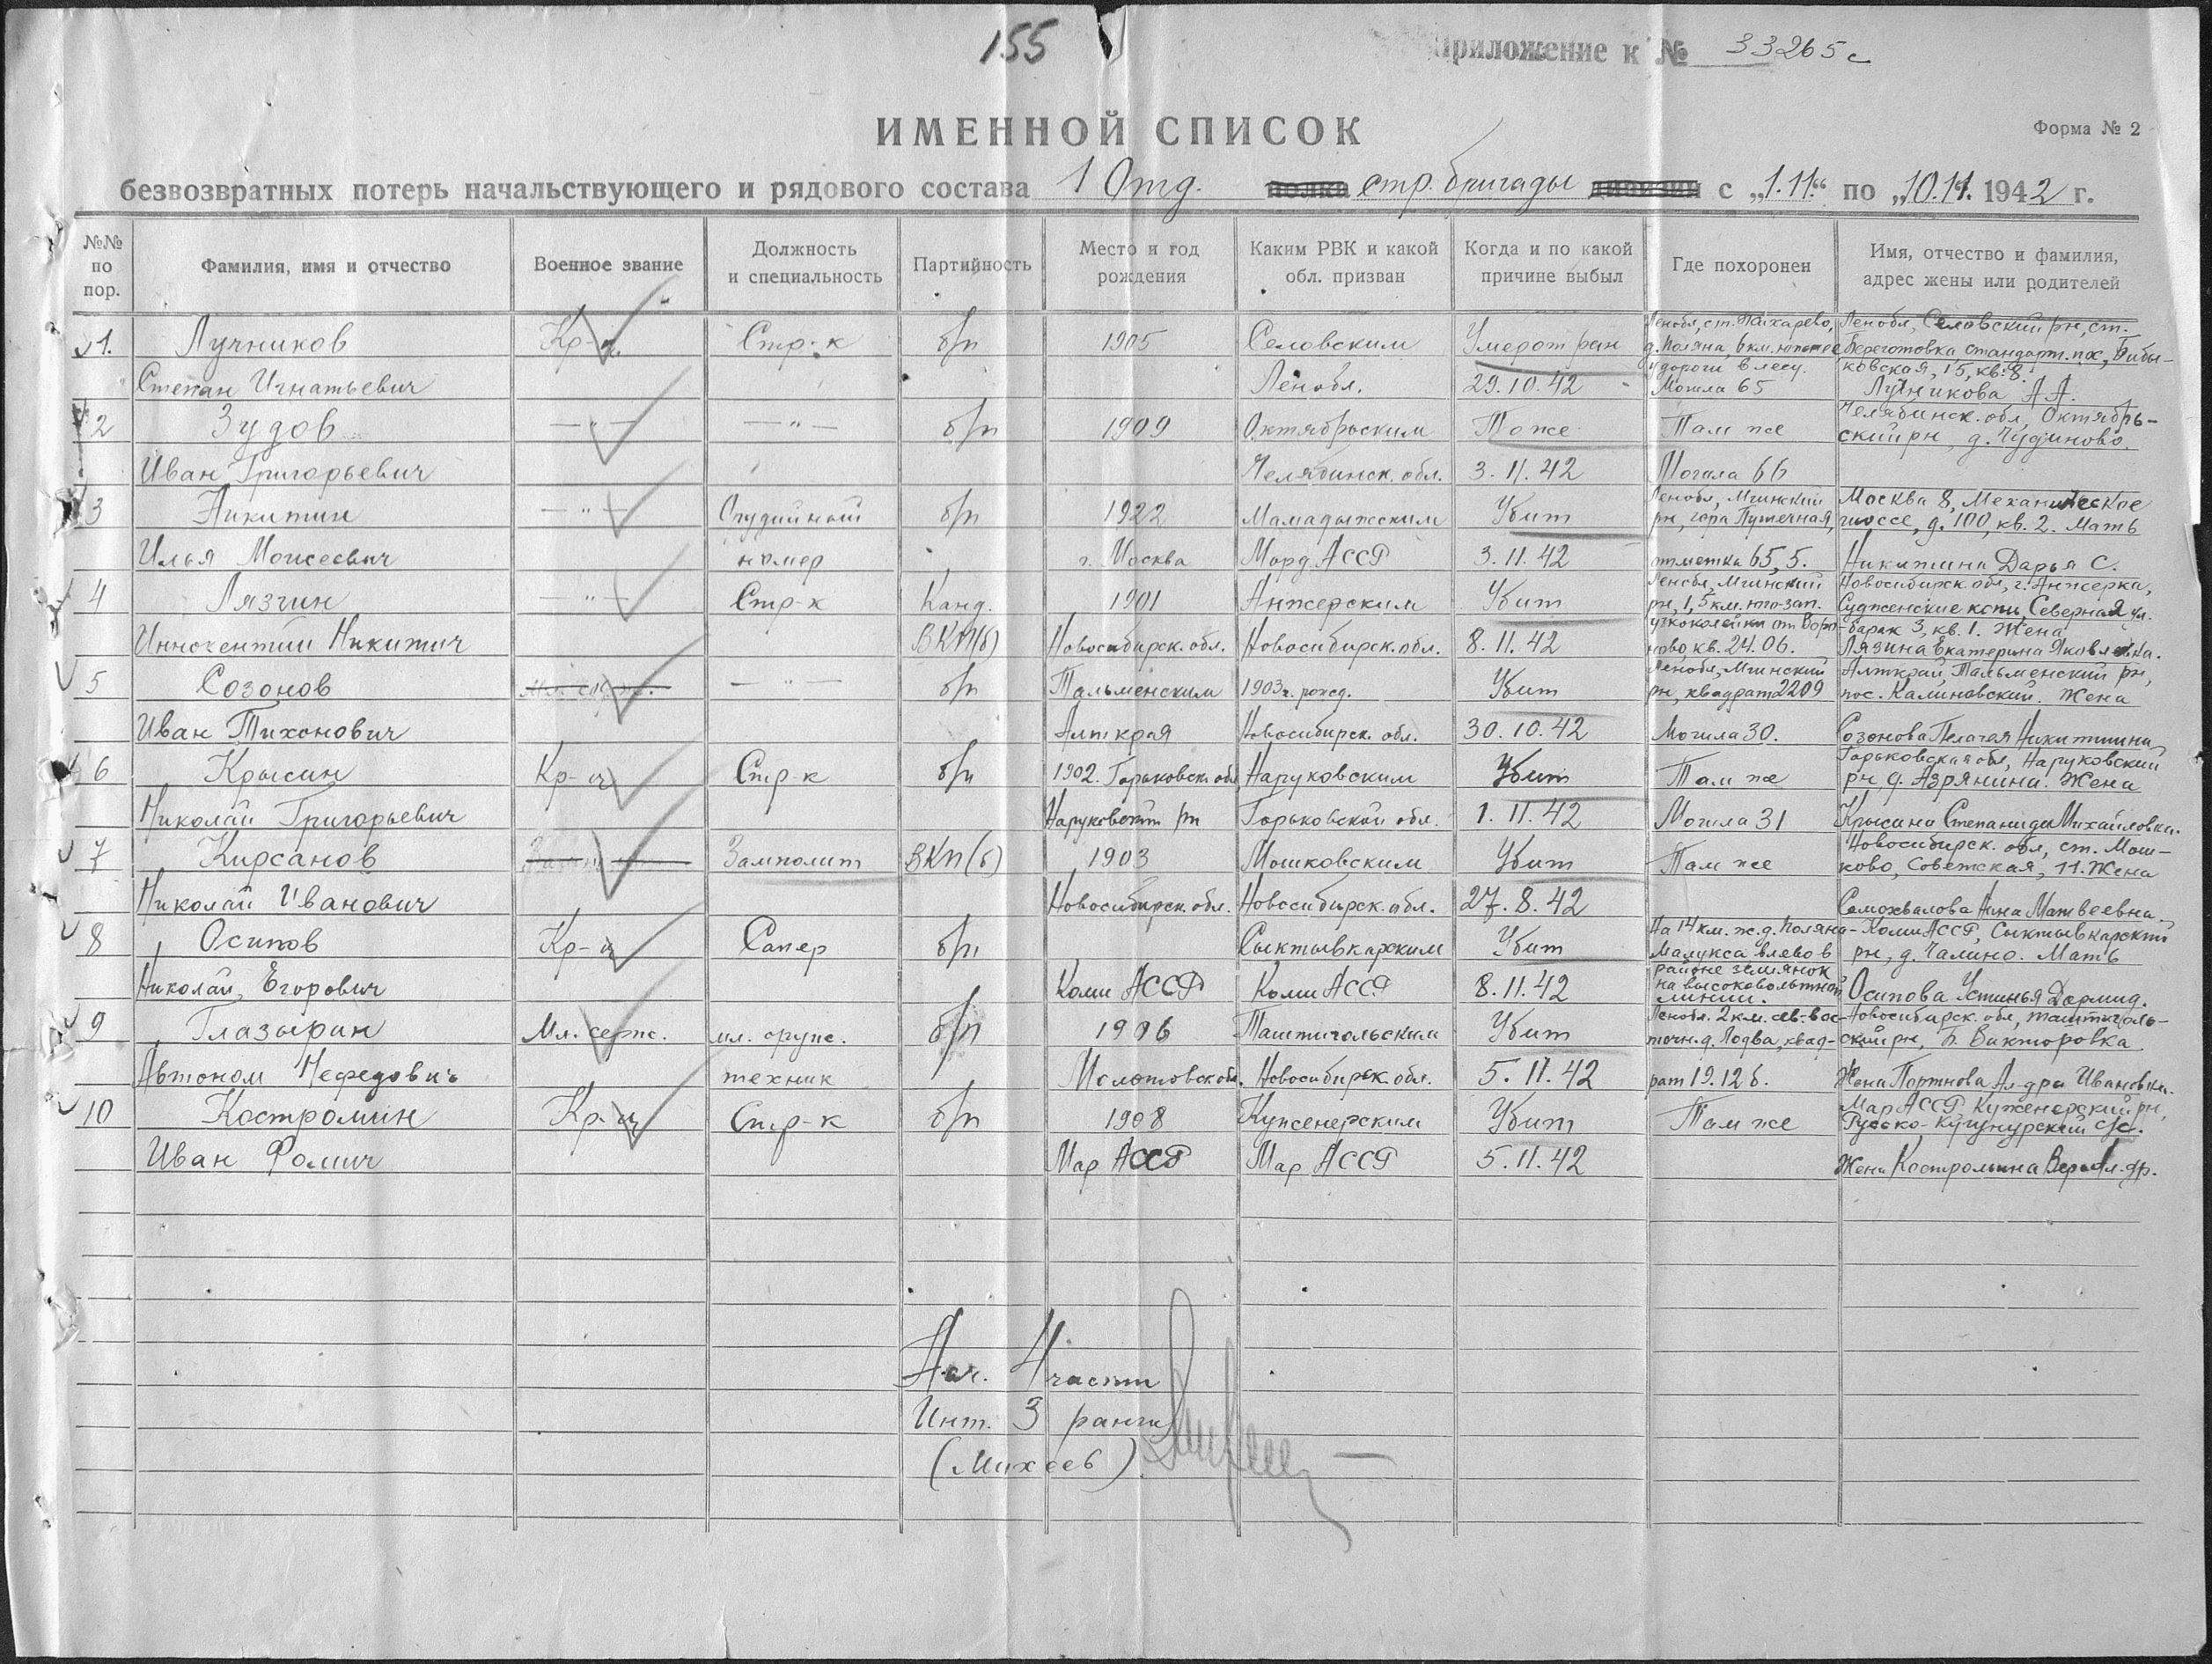 155
Приложение к № 33265с
ИМЕННОЙ СПИСОК
Форма № 2
безвозвратных потерь начальствующего и рядового состава 1 Отд. полка стр. бригады дивизии с „1.11.“ по „10.11. 1942 г.
№№ по пор. Фамилия, имя и отчество Военное звание Должность и специальность Партийность Место и год рождения Каким РВК и какой обл. призван Когда и по какой причине выбыл Где похоронен Имя, отчество и фамилия, адрес жены или родителей
1. Лучников Кр-ц. Стр-к б/п 1905 Селовским Умер от ран Ленобл, ст. Пахарево, д. Поляна, 6 км. у дороги в лесу. Ленобл, Селовский рн, ст. Береготовка стандарт. пос, Бибыковская, 15, кв. 8.
Степан Игнатьевич Ленобл. 29.10.42 Могила 65 Лучникова А А.
2 Зудов —"— —"— б/п 1909 Октябрьским То же Там же Челябинск. обл, Октябрьский рн, д. Чудиново.
Иван Григорьевич Челябинск. обл. 3.11.42 Могила 66
3 Никитин —"— Орудийный б/п 1922 Мамадышским Убит Ленобл, Мгинский рн, гора Пушечная, Москва 8, Механическое шоссе, д. 100, кв. 2. Мать
Илья Моисеевич номер г. Москва Морд АССР 3.11.42 отметка 65,5. Никитина Дарья С.
4 Лязгин —"— Стр-к Канд. 1901 Анжерским Убит Ленобл, Мгинский рн, 1,5 км. юго-зап. узкоколейки от Воро- Новосибирск. обл, г. Анжерка, Судженские копи Северная ул. барак 3, кв. 1. Жена
Иннокентий Никитич ВКП(б) Новосибирск. обл. Новосибирск. обл. 8.11.42 ново кв. 24.06. Лязина Екатерина Яковлевна.
5 Созонов Мл. серж. —"— б/п Тальменским 1903 г. рожд. Убит Ленобл, Мгинский рн, квадрат 2209 Алткрай, Тальменский рн, пос. Калиновский. Жена
Иван Тихонович Алткрая Новосибирск. обл. 30.10.42 Могила 30. Созонова Пелагея Никитишна
6 Крысин Кр-ц Стр-к б/п 1902. Горьковск. обл Наруковским Убит Там же Горьковская обл, Наруковский рн, д. Азрянина. Жена
Николай Григорьевич Наруковский рн Горьковской обл. 1.11.42 Могила 31 Крысина Степанида Михайловна.
7 Кирсанов Замполит ВКП(б) 1903 Мошковским Убит Там же Новосибирск. обл, ст. Мошково, Советская, 11. Жена
Николай Иванович Новосибирск. обл. Новосибирск. обл. 27.8.42 Самохвалова Анна Матвеевна.
8 Осипов Кр-ц Сапер б/п Сыктывкарским Убит На 14 км. ж.д. Поляна- Малукса влево в районе землянок Коми АССР, Сыктывкарский рн, д. Чалино. Мать
Николай Егорович Коми АССР Коми АССР 8.11.42 на высоковольтной линии. Осипова Устинья Дормид.
9 Глазырин Мл. серж. мл. оруж. б/п 1906 Таштагольским Убит Ленобл. 2 км. сев.-восточн. д. Лодва, квад- Новосибирск. обл, Таштагольский рн, Б. Викторовка
Автоном Нефедович техник Молотовск обл. Новосибирск. обл. 5.11.42 рат 19.12 б. Жена Портнова Ал-дра Ивановна.
10 Костромин Кр-ц Стр-к б/п 1908 Куженерским Убит Там же Мар АССР, Куженерский рн, Русско-Кугунурский с/с.
Иван Фомич Мар АССР Мар АССР 5.11.42 Жена Костромина Вера Ал-др.
Нач. 4 части
Инт. 3 ранга
(Михеев)